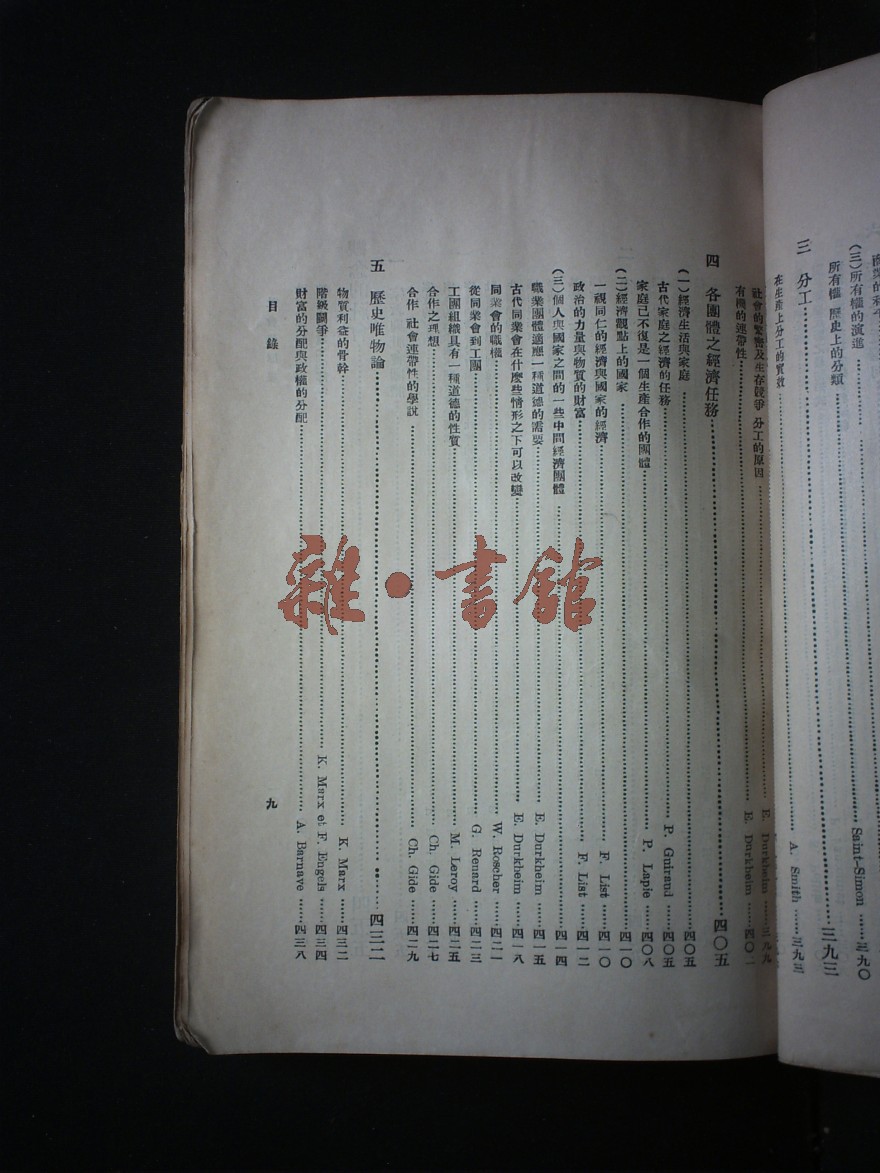 (三)所有權的演進……Saint-Simon……三九〇
所有權 歷史上的分類
三 分工……三九三
在生產上分工的實效……A. Smith……三九三
社會的繁密及生存競爭 分工的原因……E. Durkheim……三九九
有機的連帶性……E. Durkheim……四〇二
四 各團體之經濟任務……四〇五
(一)經濟生活與家庭……四〇五
古代家庭之經濟的任務……P. Guiraud……四〇五
家庭已不復是一個生產合作的團體……P. Lapie……四〇八
(二)經濟觀點上的國家……四一〇
一視同仁的經濟與國家的經濟……F. List……四一〇
政治的力量與物質的財富……F. List……四一二
(三)個人與國家之間的一些中間經濟團體……四一四
職業團體適應一種道德的需要……E. Durkheim……四一五
古代同業會在什麼些情形之下可以改變……E. Durkheim……四一八
同業會的職權……W. Roscher……四二一
從同業會到工團……G. Renard……四二三
工團組織具有一種道德的性質……M. Leroy……四二五
合作之理想……Ch. Gide……四二七
合作 社會連帶性的學說……Ch. Gide……四二九
五 歷史唯物論……四三二
物質利益的骨幹……K. Marx……四三二
階級鬭爭……K. Marx et F. Engels……四三四
財富的分配與政權的分配……A. Barnave……四三八
目錄
九
雜·書館